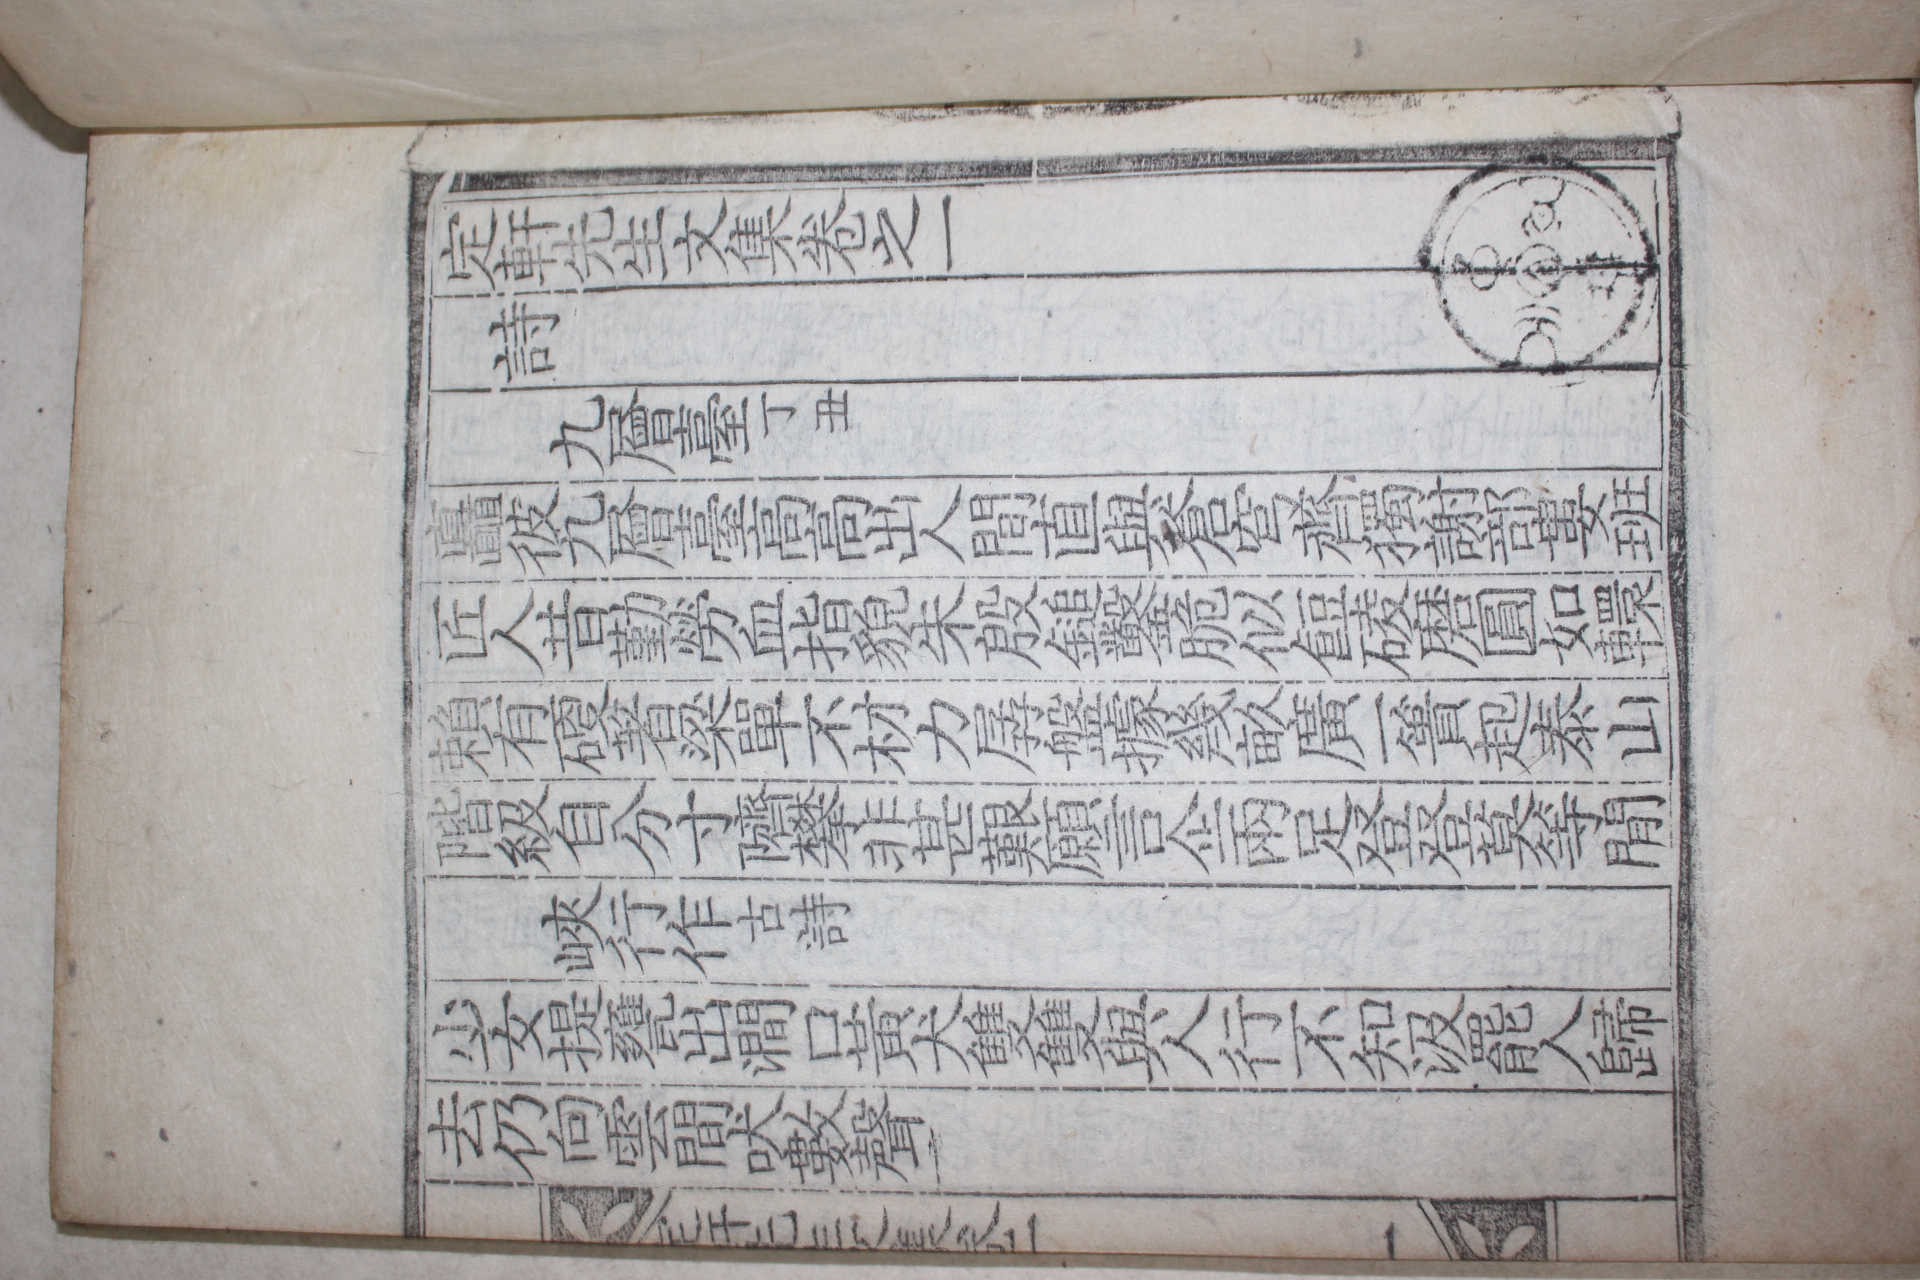 定軒先生文集卷之一
詩
九層臺丁丑
矗彼九層臺高高出人間直與蒼穹齊獨謝部婁班
匠人昔勤勞血指貌朱殷鎚鑿脆似餖磏磨圓如轘
賴有礎著梁單不材力孱盤據幾畝廣一簣起泰山
階級自分寸隮攀非甚艱願言企兩足登登莫等閒
峽行作古詩
少女提甕出澗口黃犬雙雙與人行不知汲罷人歸
去仍向雲間吠數聲
定軒先生文集卷一
一